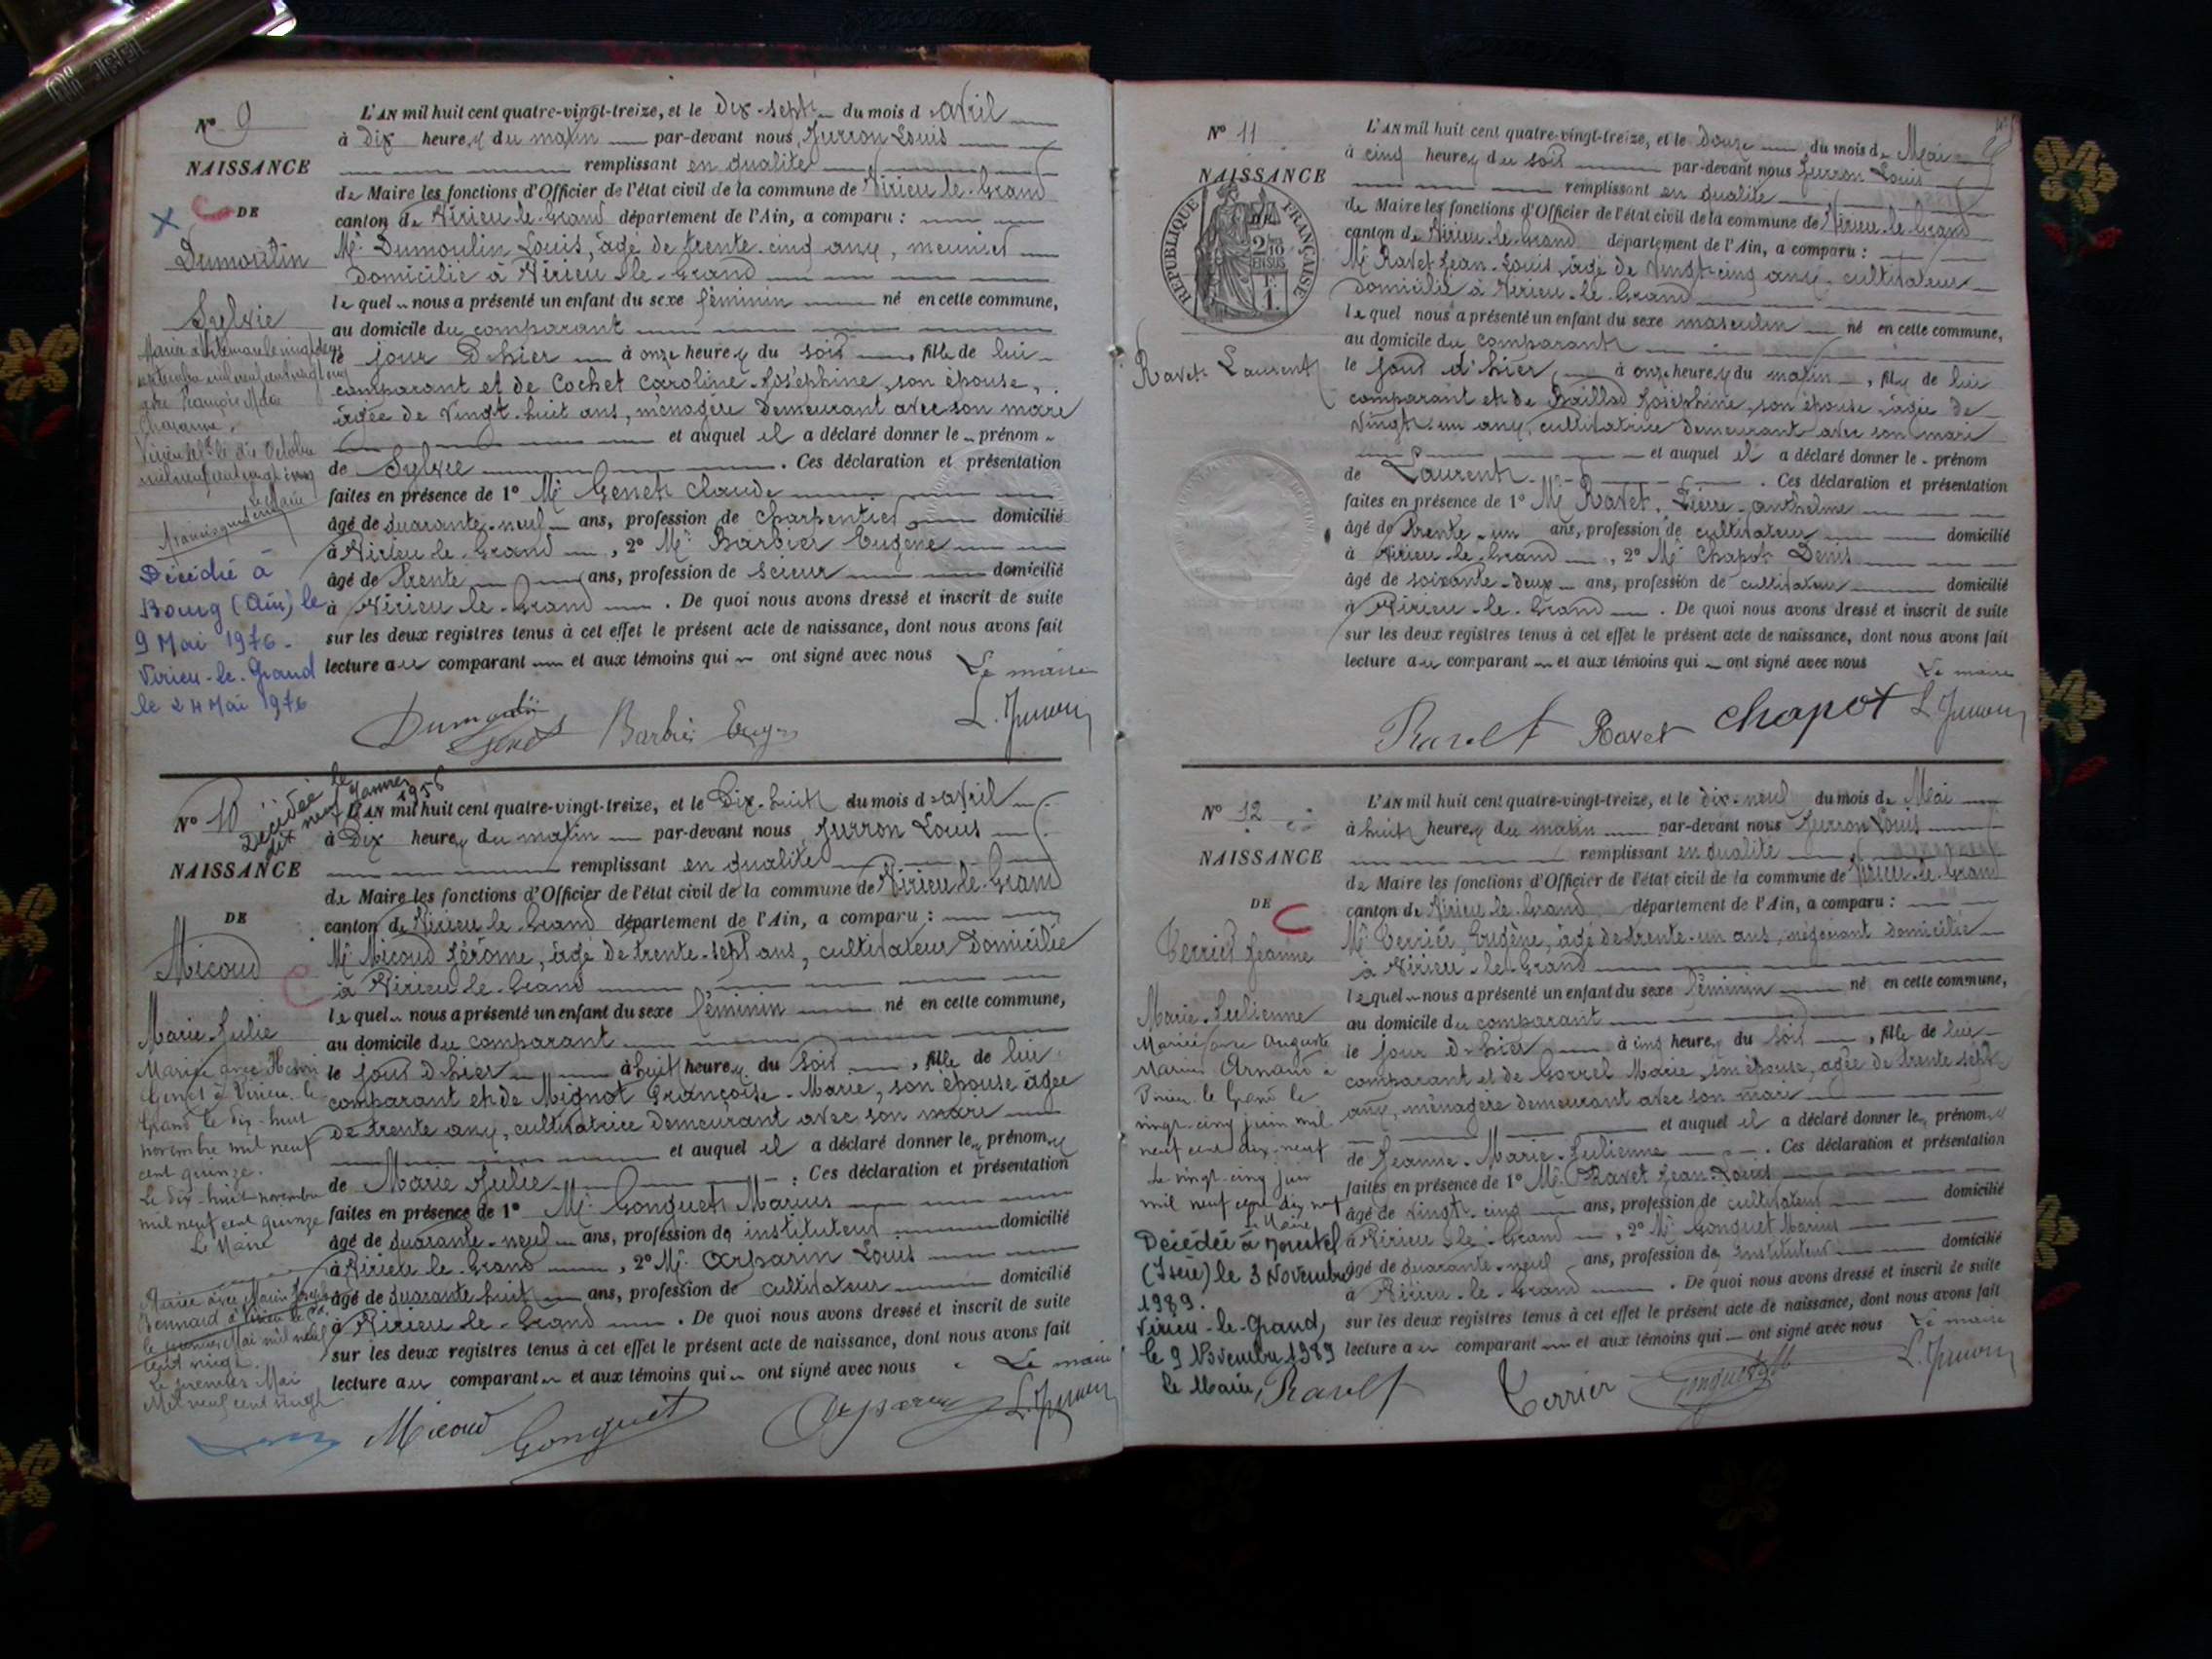 N° 9
NAISSANCE
DE
Dumoulin
Sylvie
Mariée à Artemare le vingt deux
septembre mil neuf cent vingt cinq
avec François
Virieu le Gd le dix Octobre
mil neuf cent vingt cinq
Le Maire
Décédée à
Bourg (Ain) le
9 Mai 1976.
Virieu-le-Grand
le 24 Mai 1976
L'AN mil huit cent quatre-vingt-treize, et le Dix-sept du mois d'avril
à Dix heures du matin par-devant nous, Jurron Louis
remplissant en qualité
de Maire les fonctions d'Officier de l'état civil de la commune de Virieu-le-Grand
canton de Virieu-le-Grand département de l'Ain, a comparu :
Mr Dumoulin Louis, âgé de trente-cinq ans, meunier
domicilié à Virieu-le-Grand
lequel nous a présenté un enfant du sexe féminin né en cette commune,
au domicile du comparant
le jour d'hier à onze heures du soir, fille de lui
comparant et de Cochet Caroline-Joséphine, son épouse,
âgée de vingt-huit ans, ménagère demeurant avec son mari
et auquel il a déclaré donner le prénom
de Sylvie. Ces déclaration et présentation
faites en présence de 1° Mr Genet Claude
âgé de quarante-neuf ans, profession de charpentier domicilié
à Virieu-le-Grand, 2° Mr Barbier Eugène
âgé de trente ans, profession de scieur domicilié
à Virieu-le-Grand. De quoi nous avons dressé et inscrit de suite
sur les deux registres tenus à cet effet le présent acte de naissance, dont nous avons fait
lecture au comparant et aux témoins qui ont signé avec nous
Le maire
Dumoulin
Genet Barbier Eug L. Jurron
N° 10
Décédée le
dix neuf Janvier
1956
NAISSANCE
DE
Micoud
Marie-Julie
Mariée avec Henri
Genet à Virieu-le-
Grand le dix-huit
novembre mil neuf
cent quinze.
Le dix-huit novembre
mil neuf cent quinze
Le Maire
Mariée avec Marin Joseph
à Virieu le Gd
le premier Mai mil neuf
cent vingt.
Le premier Mai
Mil neuf cent vingt
L'AN mil huit cent quatre-vingt-treize, et le Dix-huit du mois d'avril
à Dix heures du matin par-devant nous, Jurron Louis
remplissant en qualité
de Maire les fonctions d'Officier de l'état civil de la commune de Virieu-le-Grand
canton de Virieu-le-Grand département de l'Ain, a comparu :
Mr Micoud Jérôme, âgé de trente-sept ans, cultivateur domicilié
à Virieu-le-Grand
lequel nous a présenté un enfant du sexe féminin né en cette commune,
au domicile du comparant
le jour d'hier à huit heures du soir, fille de lui
comparant et de Mignot Françoise-Marie, son épouse âgée
de trente ans, cultivatrice demeurant avec son mari
et auquel il a déclaré donner les prénoms
de Marie Julie. Ces déclaration et présentation
faites en présence de 1° Mr Gonguet Marius
âgé de quarante-neuf ans, profession de instituteur domicilié
à Virieu-le-Grand, 2° Mr Arparin Louis
âgé de quarante-huit ans, profession de cultivateur domicilié
à Virieu-le-Grand. De quoi nous avons dressé et inscrit de suite
sur les deux registres tenus à cet effet le présent acte de naissance, dont nous avons fait
lecture au comparant et aux témoins qui ont signé avec nous
Le maire
Micoud Gonguet Arparin L. Jurron
N° 11
NAISSANCE
DE
REPUBLIQUE FRANÇAISE
Ravet Laurent
L'AN mil huit cent quatre-vingt-treize, et le Douze du mois de Mai
à cinq heures du soir par-devant nous Jurron Louis
remplissant en qualité
de Maire les fonctions d'Officier de l'état civil de la commune de Virieu-le-Grand
canton de Virieu-le-Grand département de l'Ain, a comparu :
Mr Ravet Jean-Louis, âgé de vingt-cinq ans, cultivateur
domicilié à Virieu-le-Grand
lequel nous a présenté un enfant du sexe masculin né en cette commune,
au domicile du comparant
le jour d'hier, à onze heures du matin, fils de lui
comparant et de Baillod Joséphine, son épouse, âgée de
vingt-un ans, cultivatrice demeurant avec son mari
et auquel il a déclaré donner le prénom
de Laurent. Ces déclaration et présentation
faites en présence de 1° Mr Ravet, Pierre-anthelme
âgé de trente-un ans, profession de cultivateur domicilié
à Virieu-le-Grand, 2° Mr Chapot Denis
âgé de soixante-deux ans, profession de cultivateur domicilié
à Virieu-le-Grand. De quoi nous avons dressé et inscrit de suite
sur les deux registres tenus à cet effet le présent acte de naissance, dont nous avons fait
lecture au comparant et aux témoins qui ont signé avec nous
Le maire
Ravet Ravet Chapot L. Jurron
N° 12
NAISSANCE
DE
Terrier Jeanne
Marie-Julienne
Mariée avec Auguste
Marius Arnaud à
Virieu le Grand le
vingt-cinq juin mil
neuf cent dix-neuf
Le vingt-cinq juin
mil neuf cent dix neuf
Le Maire
Décédée à Morestel
(Isère) le 3 Novembre
1989.
Virieu-le-Grand,
le 9 Novembre 1989
Le Maire,
L'AN mil huit cent quatre-vingt-treize, et le dix-neuf du mois de Mai
à huit heures du matin par-devant nous Jurron Louis
remplissant en qualité
de Maire les fonctions d'Officier de l'état civil de la commune de Virieu-le-Grand
canton de Virieu-le-Grand département de l'Ain, a comparu :
Mr Terrier, Eugène, âgé de trente-un ans, négociant domicilié
à Virieu-le-Grand
lequel nous a présenté un enfant du sexe féminin né en cette commune,
au domicile du comparant
le jour d'hier à cinq heures du soir, fille de lui
comparant et de Gorrel Marie, son épouse, âgée de trente-sept
ans, ménagère demeurant avec son mari
et auquel il a déclaré donner les prénoms
de Jeanne-Marie-Julienne. Ces déclaration et présentation
faites en présence de 1° Mr Ravet Jean-Louis
âgé de vingt-cinq ans, profession de cultivateur domicilié
à Virieu-le-Grand, 2° Mr Gonguet Marius
âgé de quarante-neuf ans, profession de instituteur domicilié
à Virieu-le-Grand. De quoi nous avons dressé et inscrit de suite
sur les deux registres tenus à cet effet le présent acte de naissance, dont nous avons fait
lecture au comparant et aux témoins qui ont signé avec nous
Le maire
Ravet Terrier Gonguet M L. Jurron